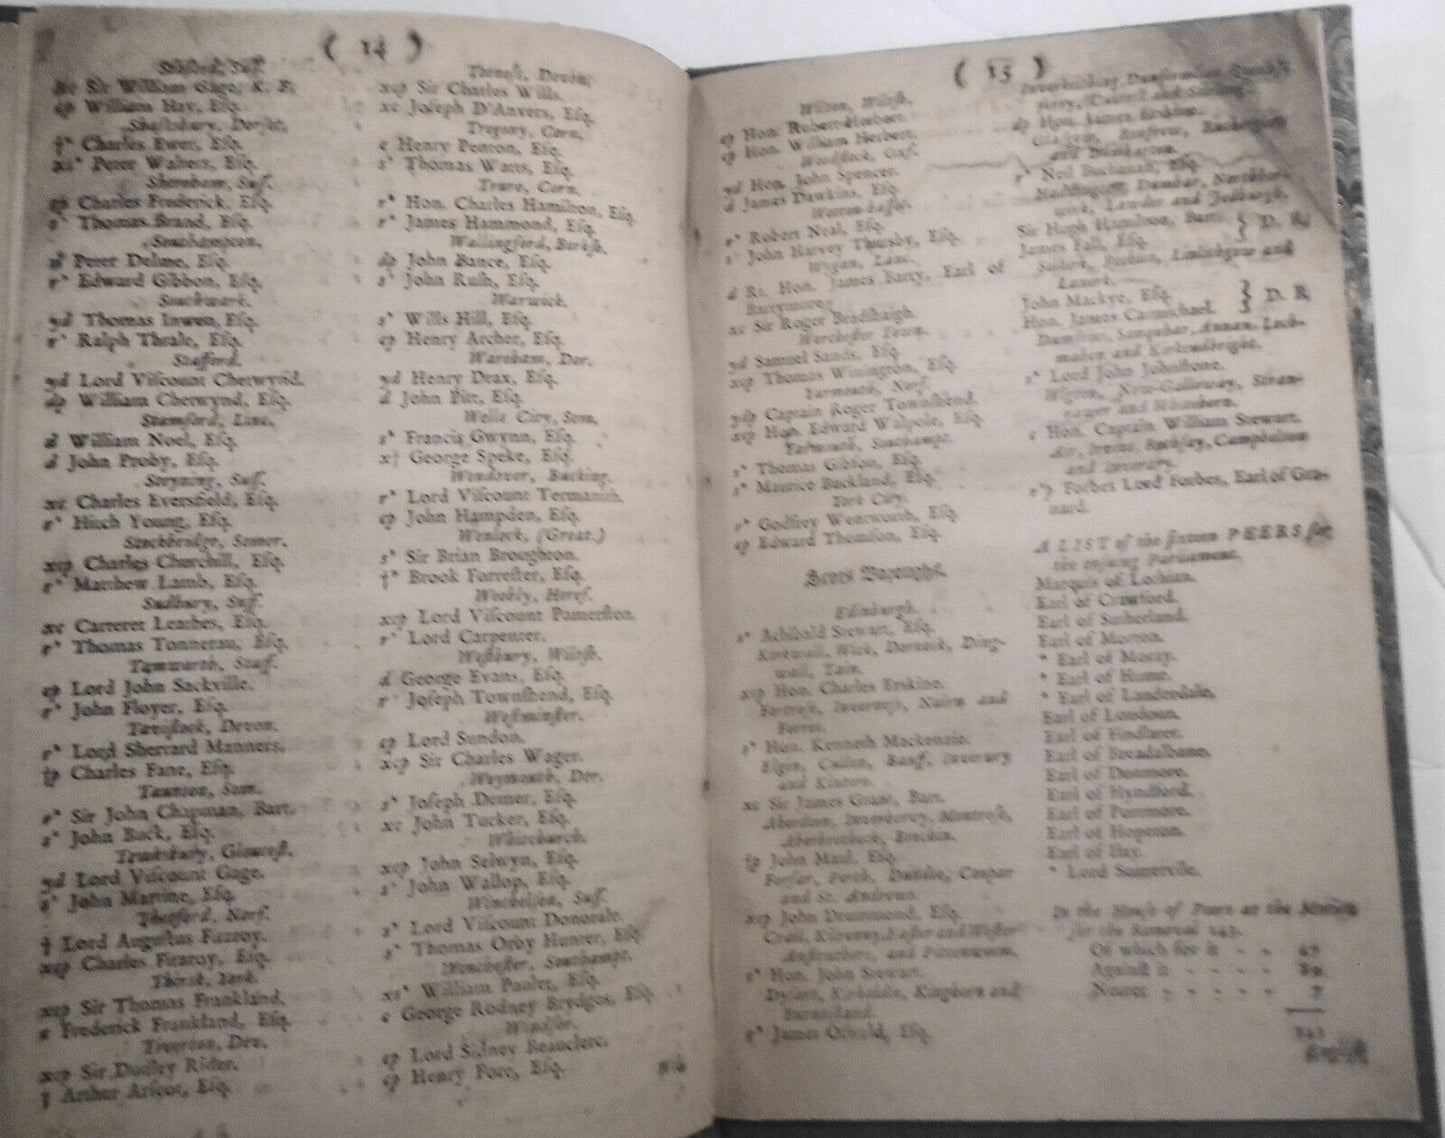 ( 14 )
Seaford, Suff.
xe Sir William Gage, K. B.
ep William Hay, Esq.
Shaftsbury, Dorset.
†* Charles Ewer, Esq.
xs* Peter Walters, Esq.
Shoreham, Suff.
ep Charles Frederick, Esq.
s* Thomas Brand, Esq.
Southampton.
Peter Delme, Esq.
r* Edward Gibbon, Esq.
Southwark.
yd Thomas Inwen, Esq.
r* Ralph Thrale, Esq.
Stafford.
yd Lord Viſcount Chetwynd.
dp William Chetwynd, Esq.
Stamford, Linc.
d William Noel, Eſq.
d John Proby, Eſq.
Steyning, Suſſ.
xe Charles Eversfield, Eſq.
s* Hitch Young, Eſq.
Stockbridge, Somer.
xep Charles Churchill, Eſq.
r* Matthew Lamb, Eſq.
Sudbury, Suff.
xe Carteret Leathes, Eſq.
r* Thomas Tonnerau, Eſq.
Tamworth, Staff.
ep Lord John Sackville.
r* John Floyer, Eſq.
Taviſtock, Devon.
r* Lord Sherrard Manners.
tp Charles Fane, Eſq.
Taunton, Som.
r* Sir John Chapman, Bart.
s* John Buck, Eſq.
Tewksbury, Gloucest.
yd Lord Viſcount Gage.
John Martine, Eſq.
Thetford, Norf.
† Lord Auguſtus Fitzroy.
xep Charles Fitzroy, Eſq.
Thirſk, York.
xep Sir Thomas Frankland.
e Frederick Frankland, Eſq.
Tiverton, Dev.
xep Sir Dudley Rider.
Arthur Arſcot, Eſq.
Totneſs, Devon.
xep Sir Charles Wills.
xe Joſeph D'Anvers, Eſq.
Tregony, Corn.
e Henry Penton, Eſq.
s* Thomas Watts, Eſq.
Truro, Corn.
r* Hon. Charles Hamilton, Eſq.
r* James Hammond, Eſq.
Wallingford, Berkſh.
dp John Bance, Eſq.
s* John Ruſh, Eſq.
Warwick.
s* Wills Hill, Eſq.
ep Henry Archer, Eſq.
Wareham, Dor.
yd Henry Drax, Eſq.
d John Pitt, Eſq.
Wells City, Som.
s* Francis Gwynn, Eſq.
x† George Speke, Eſq.
Wendover, Bucking.
r* Lord Viſcount
ep John Hampden, Eſq.
Wenlock, (Great.)
s* Sir Brian Broughton.
†* Brook Forreſter, Eſq.
Weobly, Heref.
xep Lord Viſcount Pamerſton.
r* Lord Carpenter.
Weſtbury, Wiltſh.
d George Evans, Eſq.
r* Joſeph Townſhend, Eſq.
Weſtminſter.
ep Lord Sundon.
xep Sir Charles Wager.
Weymouth, Dor.
s* Joſeph Demer, Eſq.
xe John Tucker, Eſq.
Whitchurch.
xep John Selwyn, Eſq.
s* John Wallop, Eſq.
Winchelſea, Suſſ.
s* Lord Viſcount Donorale.
s* Thomas Orby Hunter, Eſq.
Wincheſter, Southampt.
xs* William Pawlet, Eſq.
e George Rodney Brydges, Eſq.
Windſor.
ep Lord Sidney Beauclerc.
ep Henry Fox, Eſq.
( 15 )
Wilton, Wiltſh.
ep Hon. Robert Herbert.
ep Hon. William Herbert.
Woodſtock, Oxf.
yd Hon. John Spencer.
d James Dawkins, Eſq.
Wotton-baſſet.
r* Robert Neal, Eſq.
s* John Harvey Thursby, Eſq.
Wigan, Lanc.
d Rt. Hon. James Barry, Earl of
Barrymore.
xe Sir Roger Bradſhaigh.
Worcheſter Town.
yd Samuel Sands, Eſq.
xep Thomas Winington, Eſq.
Yarmouth, Norf.
Captain Roger Townſhend.
xep Hon. Edward Walpole, Eſq.
Yarmouth, Southampt.
s* Thomas Gibſon, Eſq.
s* Maurice Buckland, Eſq.
York City.
s* Godfrey Wentworth, Eſq.
ep Edward Thomſon, Eſq.
Scots Boroughs.
Edinburgh.
s* Achibald Stewart, Eſq.
Kirkwall, Wick, Dornock, Ding-
wall, Tain.
xep Hon. Charles Erskine.
Fortroſe, Inverneſs, Nairn and
Forres.
s* Hon. Kenneth Mackenzie.
Elgin, Cullen, Banff, Inverury
and Kintore.
xe Sir James Grant, Bart.
Aberdeen, Inverbervy, Montroſe,
Aberbrothock, Brechin.
tp John Maul, Eſq.
Forfar, Perth, Dundee, Coupar
and St. Andrews.
xep John Drummond, Eſq.
Crail, Kilrenny, Eaſter and Weſter
Anſtruther, and Pittenweem.
s* Hon. John Stewart.
Dyſart, Kirkaldie, Kinghorn and
Burntiſland.
s* James Oſwald, Eſq.
Innerkeithing, Dumfermline, Queenſ-
ferry, Culroſs and Sterling.
dp Hon. James Erskine.
Glaſgow, Renfrew, Rutherglen
and Dumbarton.
r* Neil Buchanan, Eſq.
Haddington, Dunbar, Northber-
wick, Lauder and Jedburgh.
Sir Hugh Hamilton, Bart. } D. R.
James Fall, Eſq.
Selkirk, Peebles, Linlithgow and
Lanerk.
John Mackye, Eſq. } D. R.
Hon. James Carmichael.
Dumfries, Sanquhar, Annan, Loch-
maben and Kirkcudbright.
s* Lord John Johnſtone.
Wigton, New-Galloway, Stran-
rawer and Whitehorn.
e Hon. Captain William Stewart.
Air, Irwine, Rothſay, Campbeltoun
and Inverary.
Forbes Lord Forbes, Earl of Gra-
nard.
A LIST of the ſixteen PEERS for
the enſuing Parliament.
Marquis of Lothian.
Earl of Crawford.
Earl of Sutherland.
Earl of Morton.
* Earl of Moray.
* Earl of Hume.
* Earl of Lauderdale.
Earl of Loudoun.
Earl of Findlater.
Earl of Breadalbane.
Earl of Dunmore.
Earl of Hyndford.
Earl of Portmore.
Earl of Hopeton.
Earl of Ilay.
* Lord Somerville.
In the Houſe of Peers at the Motion
for the Removal 143.
Of which for it - -
Against it - - - -
Neuter - - - - -